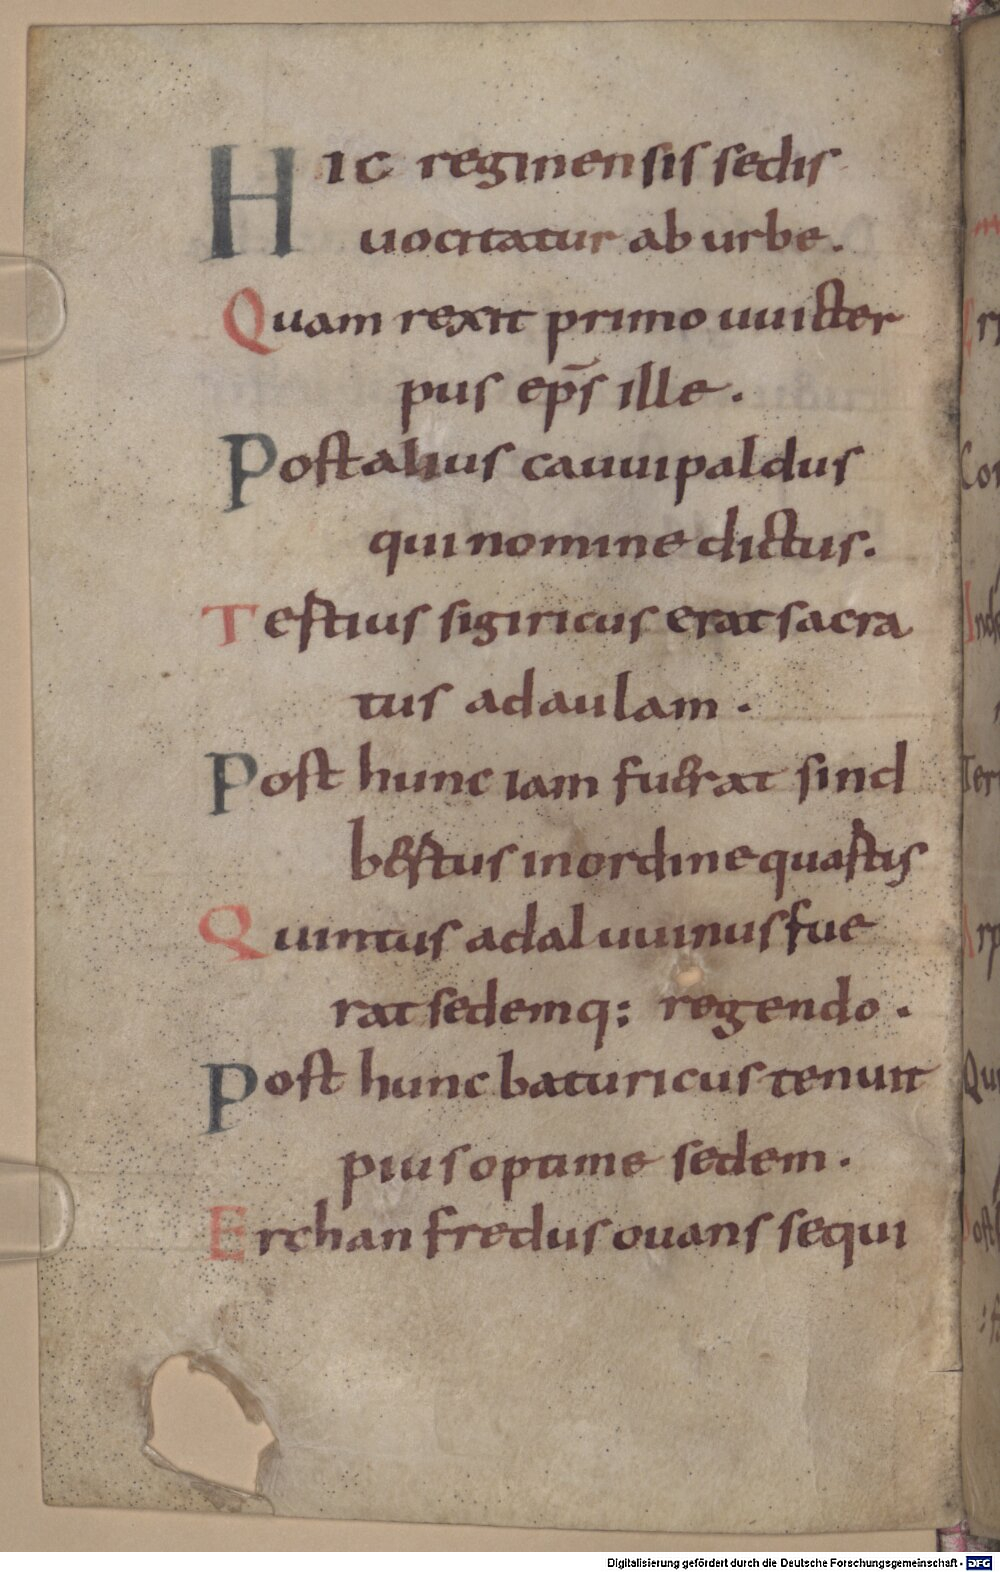 HIC reginensis sedis
uocitatur ab urbe.
Quam rexit primo uuicter
pus ep̄s ille.
Post alius cauuipaldus
qui nomine dictus.
Testius sigiricus erat sacra
tus ad aulam.
Post hunc iam fuerat sind
b&stus in ordine quastis
Quintus adaluuinus fue
rat sedemq: regendo.
Post hunc baturicus tenuit
pius optime sedem.
Erchanfredus ouans sequi
Digitalisierung gefördert durch die Deutsche Forschungsgemeinschaft - DFG